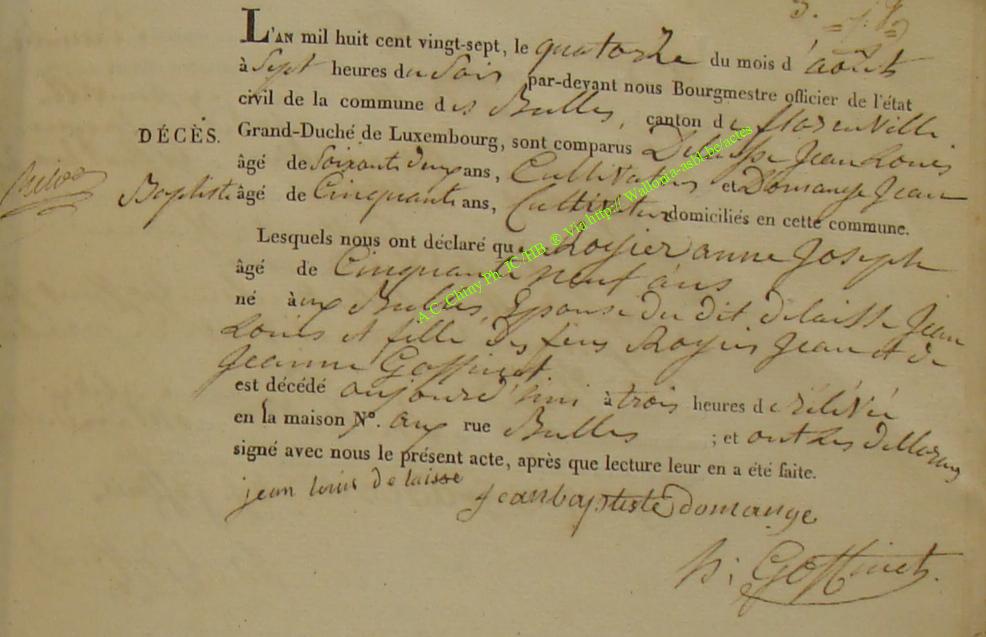 L'AN mil huit cent vingt-sept, le quatorze du mois d'août
à Sept heures du Soir par-devant nous Bourgmestre officier de l'état
civil de la commune des Bulles, canton de florenville
DÉCÈS. Grand-Duché de Luxembourg, sont comparus Delaisse Jean Louis
âgé de Soixante deux ans, Cultivateur et Domange Jean
Baptiste âgé de Cinquante ans, Cultivateur domiciliés en cette commune.
Lesquels nous ont déclaré que Rogier anne Joseph
âgé de Cinquante neuf ans
né aux Bulles, Epouse du dit delaisse Jean
Louis et fille des feus Rogier Jean et de
Jeanne Goffinet
est décédé aujourd'hui à trois heures de rélévée
en la maison Nº. aux rue Bulles ; et ont les
signé avec nous le présent acte, après que lecture leur en a été faite.
jean louis delaisse
jean baptiste domange
h: Goffinet.
A.C. Chiny Ph. IC /HB. ® Via http:// Wallonia-asbl.be/actes